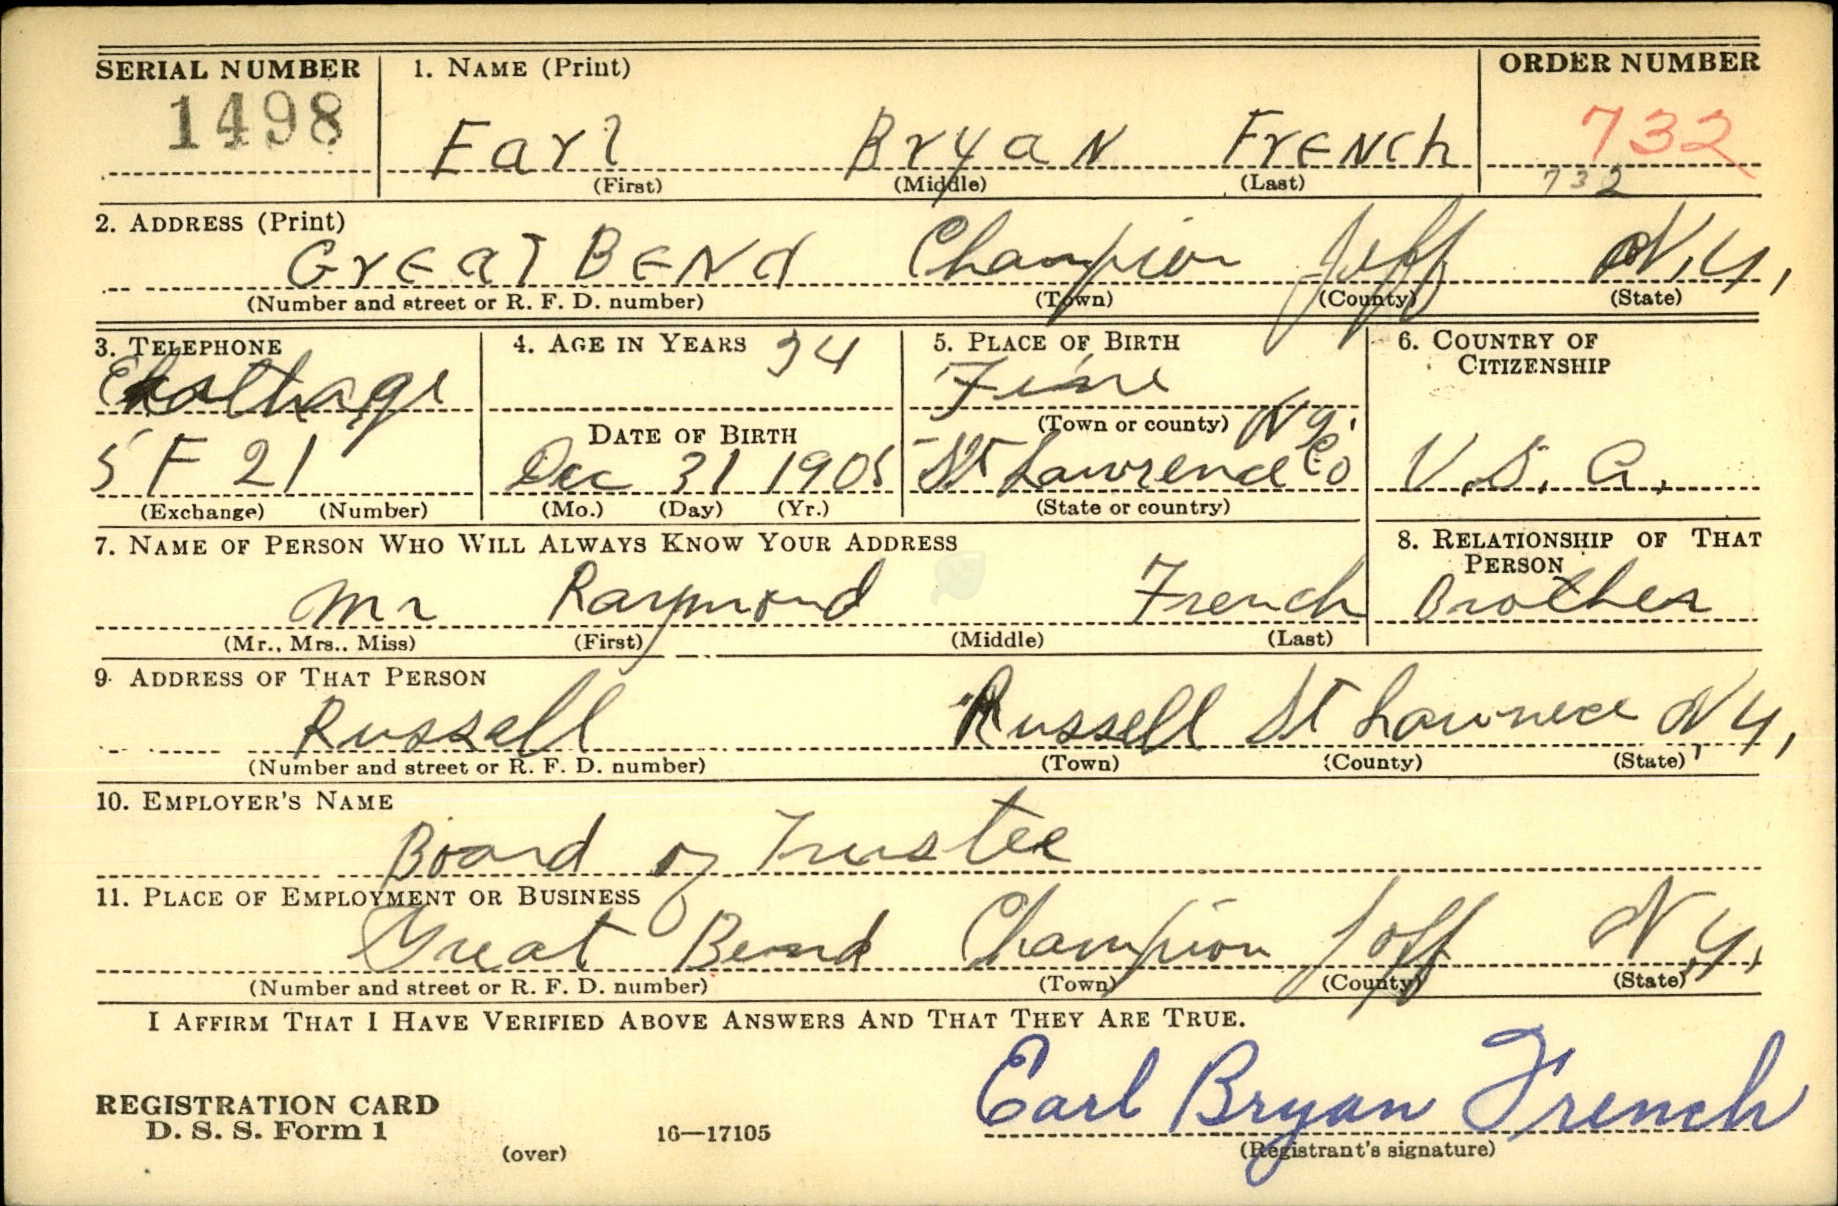 SERIAL NUMBER 1. NAME (Print) ORDER NUMBER
1498 Earl Bryan French 732
(First) (Middle) (Last) 732
2. ADDRESS (Print)
Great Bend Champion Jeff N.Y.
(Number and street or R. F. D. number) (Town) (County) (State)
3. TELEPHONE 4. AGE IN YEARS 34 5. PLACE OF BIRTH 6. COUNTRY OF CITIZENSHIP
Fine
DATE OF BIRTH (Town or county) N.Y.
5 F 21 Dec 31 1905 St Lawrence Co U.S.A.
(Exchange) (Number) (Mo.) (Day) (Yr.) (State or country)
7. NAME OF PERSON WHO WILL ALWAYS KNOW YOUR ADDRESS 8. RELATIONSHIP OF THAT PERSON
Mr Raymond French Brother
(Mr., Mrs., Miss) (First) (Middle) (Last)
9. ADDRESS OF THAT PERSON
Russell Russell St Lawrence N.Y.
(Number and street or R. F. D. number) (Town) (County) (State)
10. EMPLOYER'S NAME
Board of Trustee
11. PLACE OF EMPLOYMENT OR BUSINESS
Great Bend Champion Jeff N.Y.
(Number and street or R. F. D. number) (Town) (County) (State)
I AFFIRM THAT I HAVE VERIFIED ABOVE ANSWERS AND THAT THEY ARE TRUE.
Earl Bryan French
REGISTRATION CARD
D. S. S. Form 1 (over) 16—17105 (Registrant's signature)